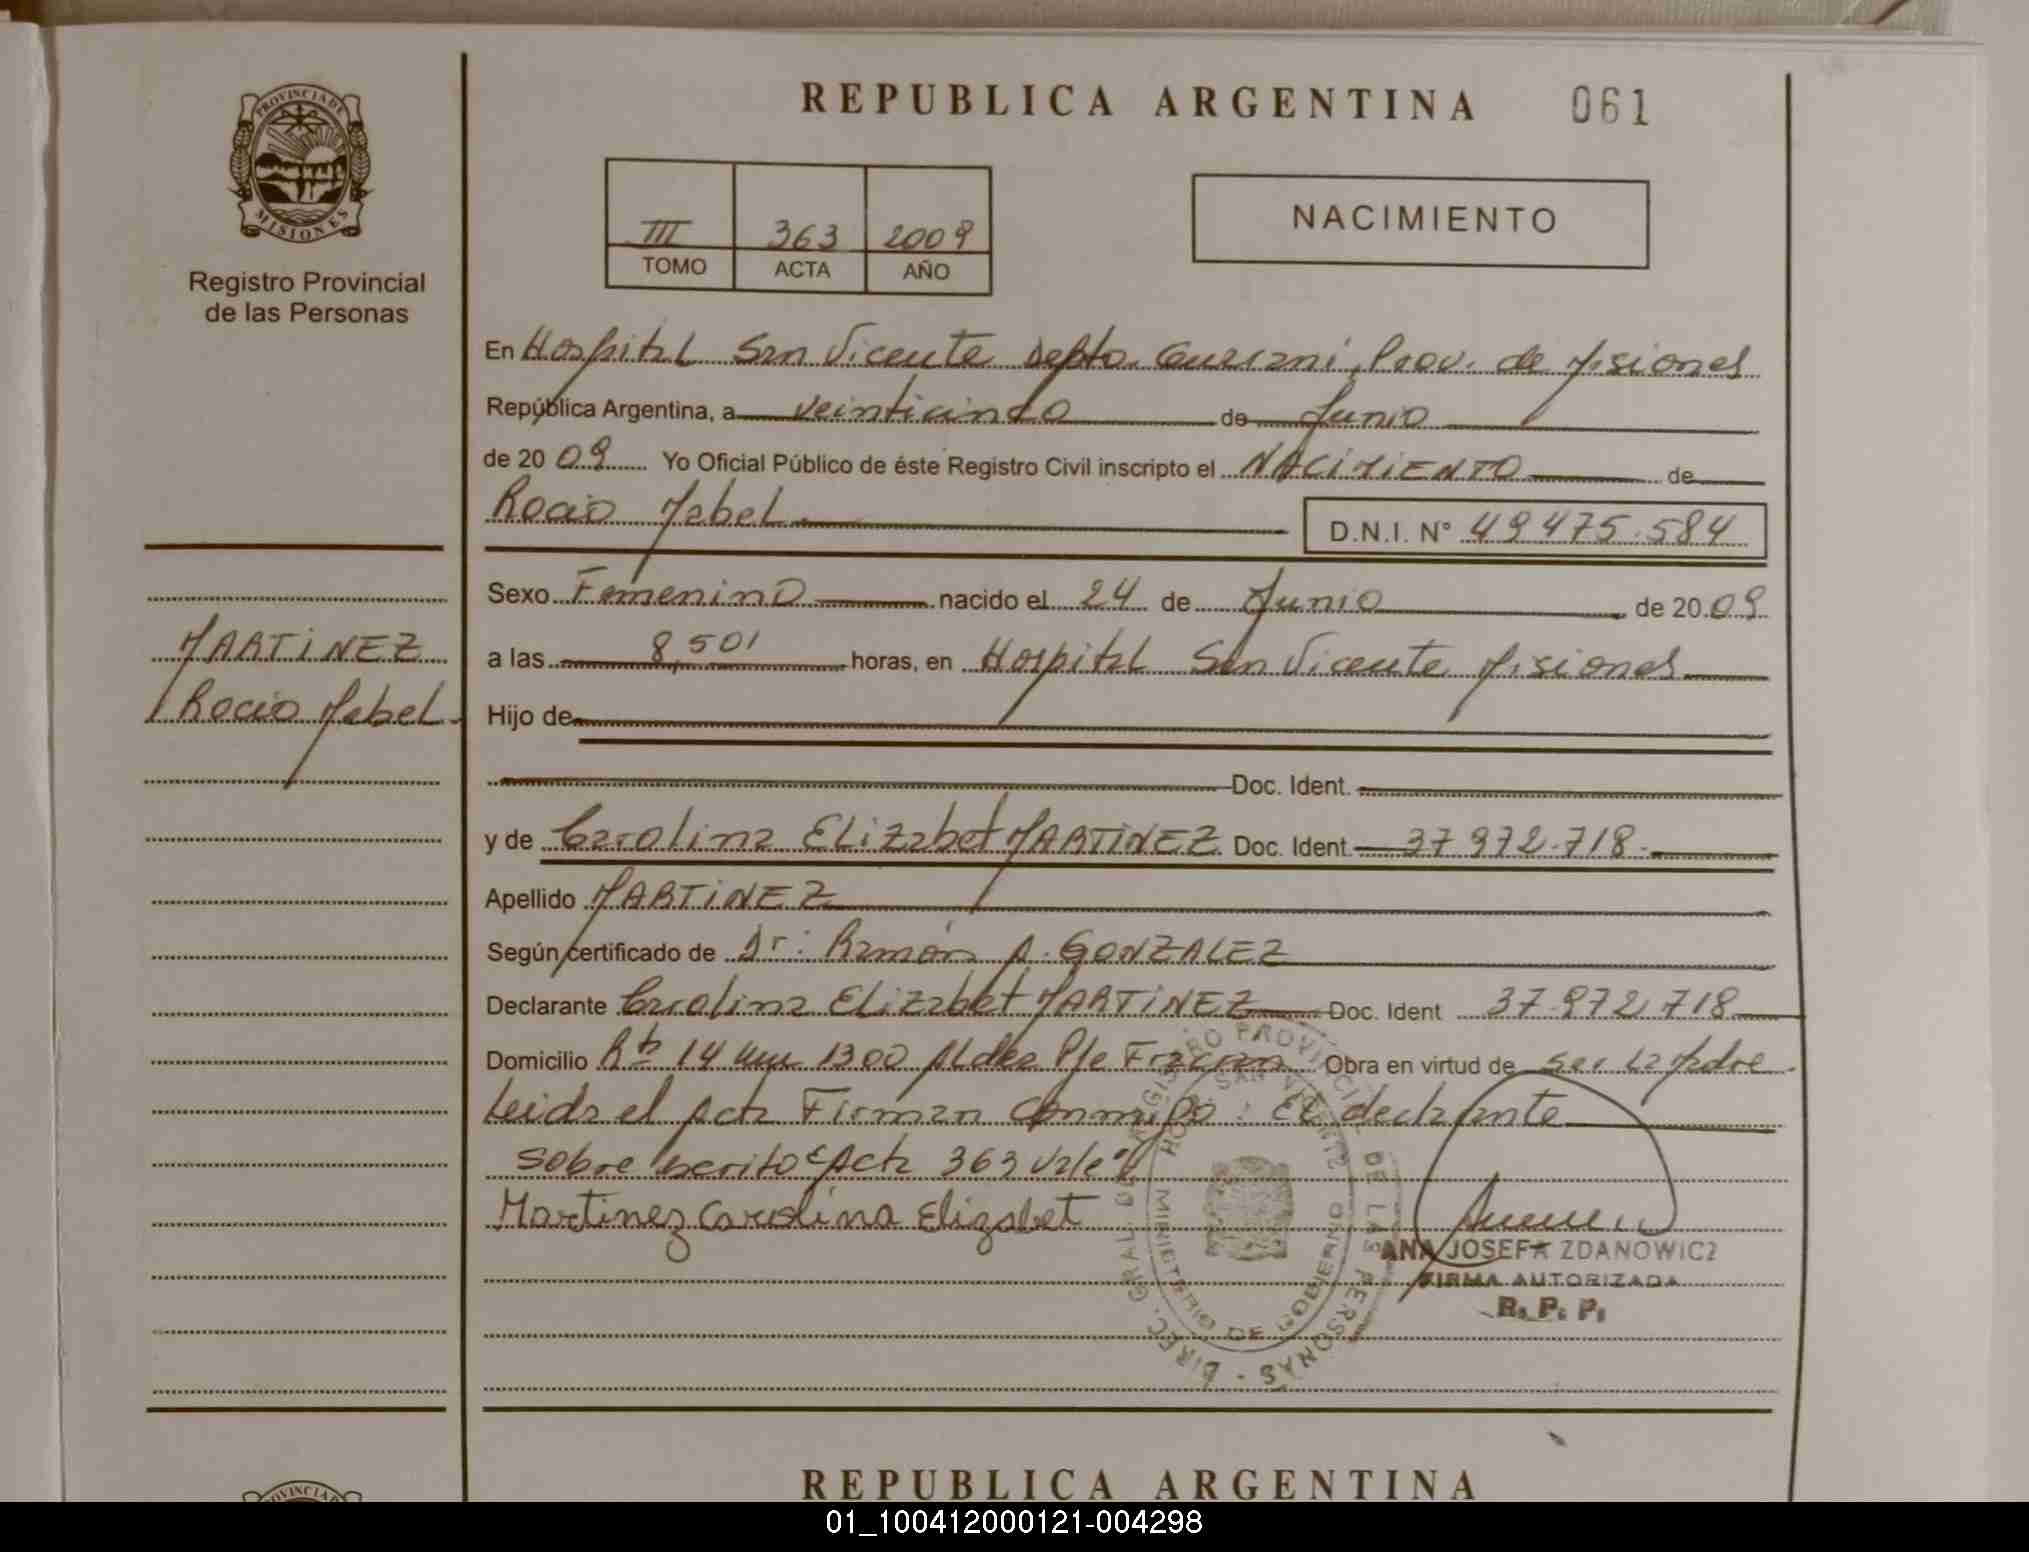 PROVINCIA DE
MISIONES
Registro Provincial
de las Personas
REPUBLICA ARGENTINA 061
III 363 2009
TOMO ACTA AÑO
NACIMIENTO
En Hospital San Vicente Depto. Guarani, Prov. de Misiones
República Argentina, a veinticinco de Junio
de 2009 Yo Oficial Público de éste Registro Civil inscripto el NACIMIENTO de
Rocio Mabel D.N.I. N° 49475.584
Sexo Femenino nacido el 24 de Junio de 2009
a las 8,50' horas, en Hospital San Vicente Misiones
MARTINEZ
Rocio Mabel
Hijo de
Doc. Ident.
y de Carolina Elizabet MARTINEZ Doc. Ident. 37 972.718.
Apellido MARTINEZ
Según certificado de Dr: Ramón A. GONZALEZ
Declarante Carolina Elizabet MARTINEZ Doc. Ident 37.972 718
Domicilio Rta 14 km 1300 Aldea Pje Obra en virtud de ser la Madre
Leida el Acta Firman conmigo: El declarante
sobre escrito Acta 363 Vale
Martinez Carolina Elizabet
DIREC. GRAL. DEL REGISTRO PROVINCIAL DE LAS PERSONAS
SAN VICENTE
MINISTERIO DE GOBIERNO
ANA JOSEFA ZDANOWICZ
FIRMA AUTORIZADA
R. P. P.
REPUBLICA ARGENTINA
01_100412000121-004298